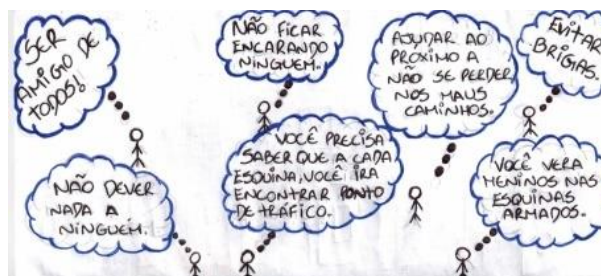 SER
AMIGO DE
TODOS!
NÃO FICAR
ENCARANDO
NINGUÉM.
AJUDAR AO
PRÓXIMO A
NÃO SE PERDER
NOS MAUS
CAMINHOS.
EVITAR
BRIGAS.
NÃO DEVER
NADA A
NINGUÉM.
VOCÊ PRECISA
SABER QUE A CADA
ESQUINA, VOCÊ IRA
ENCONTRAR PONTO
DE TRÁFICO.
VOCÊ VERA
MENINOS NAS
ESQUINAS
ARMADOS.